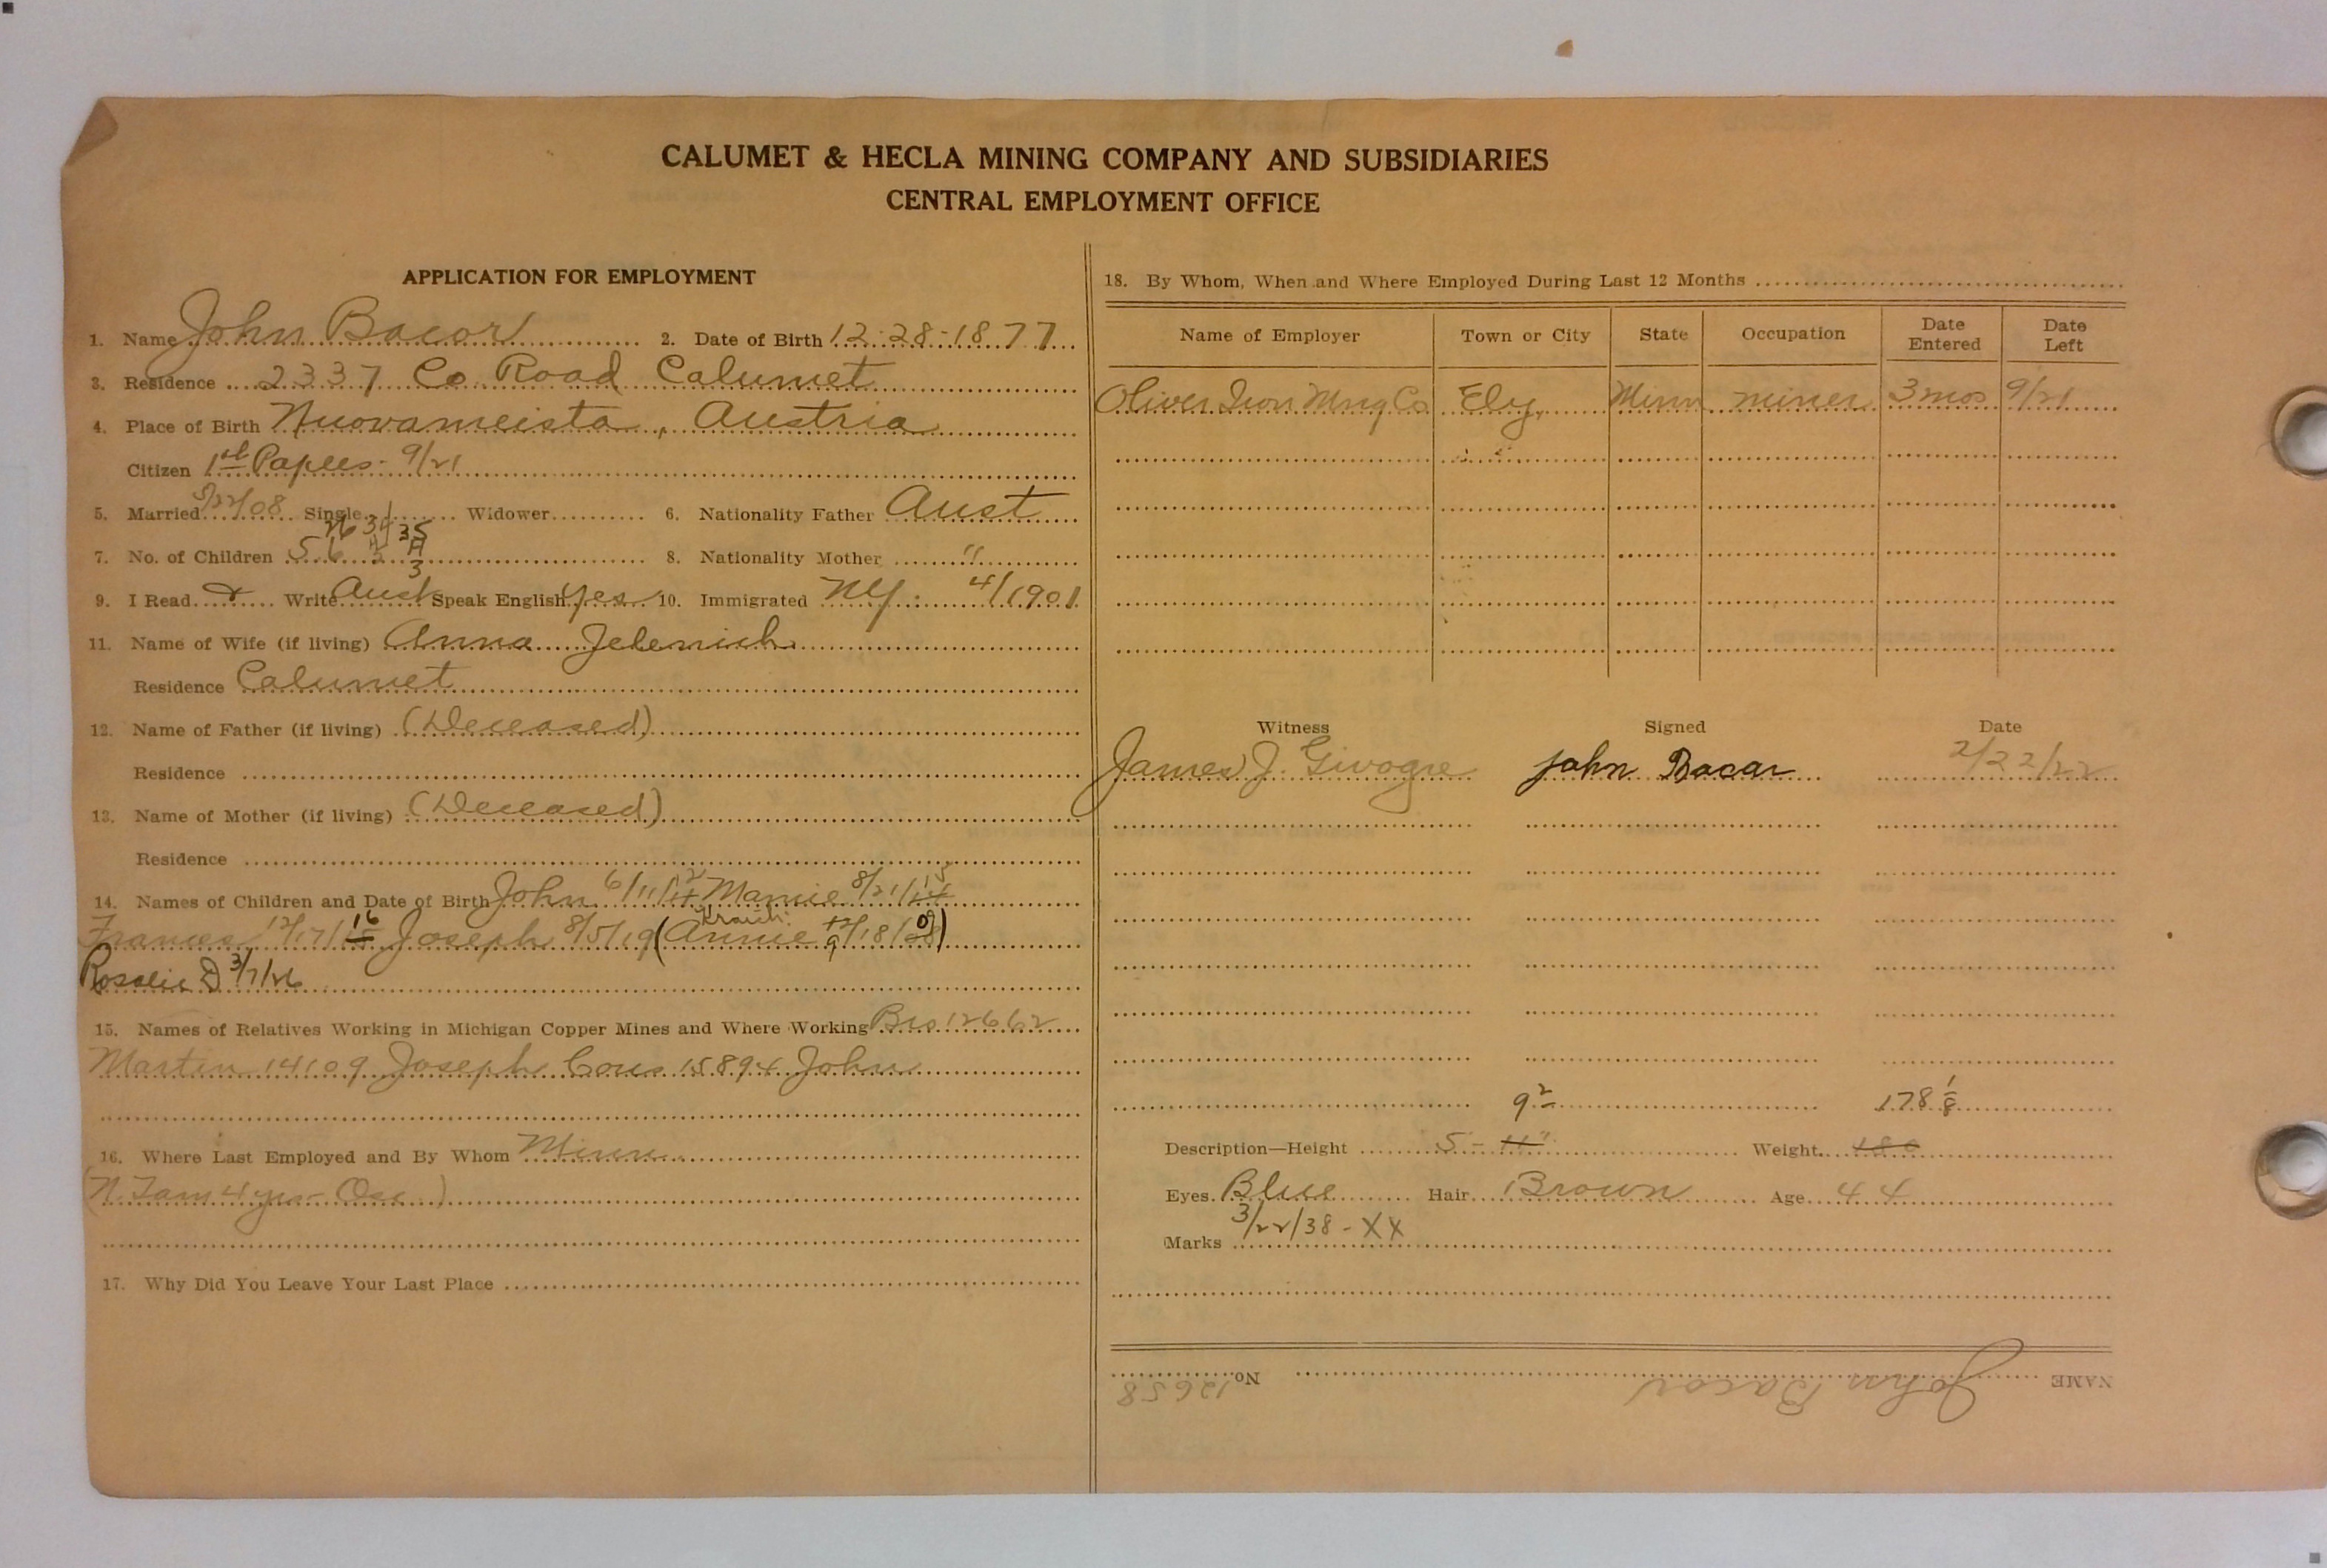 CALUMET & HECLA MINING COMPANY AND SUBSIDIARIES
CENTRAL EMPLOYMENT OFFICE
APPLICATION FOR EMPLOYMENT
1. Name John Bacor 2. Date of Birth 12-28-1877
3. Residence 2337 Co Road Calumet
4. Place of Birth Nuovameista, Austria
Citizen 1st Papers - 9/21
5. Married /22/08 Single Widower 6. Nationality Father Aust
26 34 35
7. No. of Children 5 6 8. Nationality Mother "
3
9. I Read & Write Aust Speak English yes 10. Immigrated NY. 4/1901
11. Name of Wife (if living) Anna Jelenich
Residence Calumet
12. Name of Father (if living) (Deceased)
Residence
13. Name of Mother (if living) (Deceased)
Residence
14. Names of Children and Date of Birth John 6/11/12 Mamie 8/21/15
Frances 12/17/16 Joseph 8/5/19 (Annie 9/18/09)
Rosalie D 3/7/26
15. Names of Relatives Working in Michigan Copper Mines and Where Working Bro 12662
Martin 14109 Joseph Cous 15894 John
16. Where Last Employed and By Whom Minn
(N. Tam 4 yrs - Osc)
17. Why Did You Leave Your Last Place
18. By Whom, When and Where Employed During Last 12 Months
Name of Employer Town or City State Occupation Date Entered Date Left
Oliver Iron Mng Co Ely Minn miner 3 mos 9/21
Witness Signed Date
James J. Givogre John Bacar 2/22/22
9 2 178 1/8
Description—Height 5 - 11" Weight 180
Eyes Blue Hair Brown Age 44
3/22/38 - XX
Marks
NAME John Bacor No. 12658